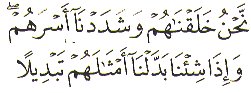 نَّحْنُ خَلَقْنَٰهُمْ وَشَدَدْنَآ أَسْرَهُمْ ۖ
وَإِذَا شِئْنَا بَدَّلْنَآ أَمْثَٰلَهُمْ تَبْدِيلًا